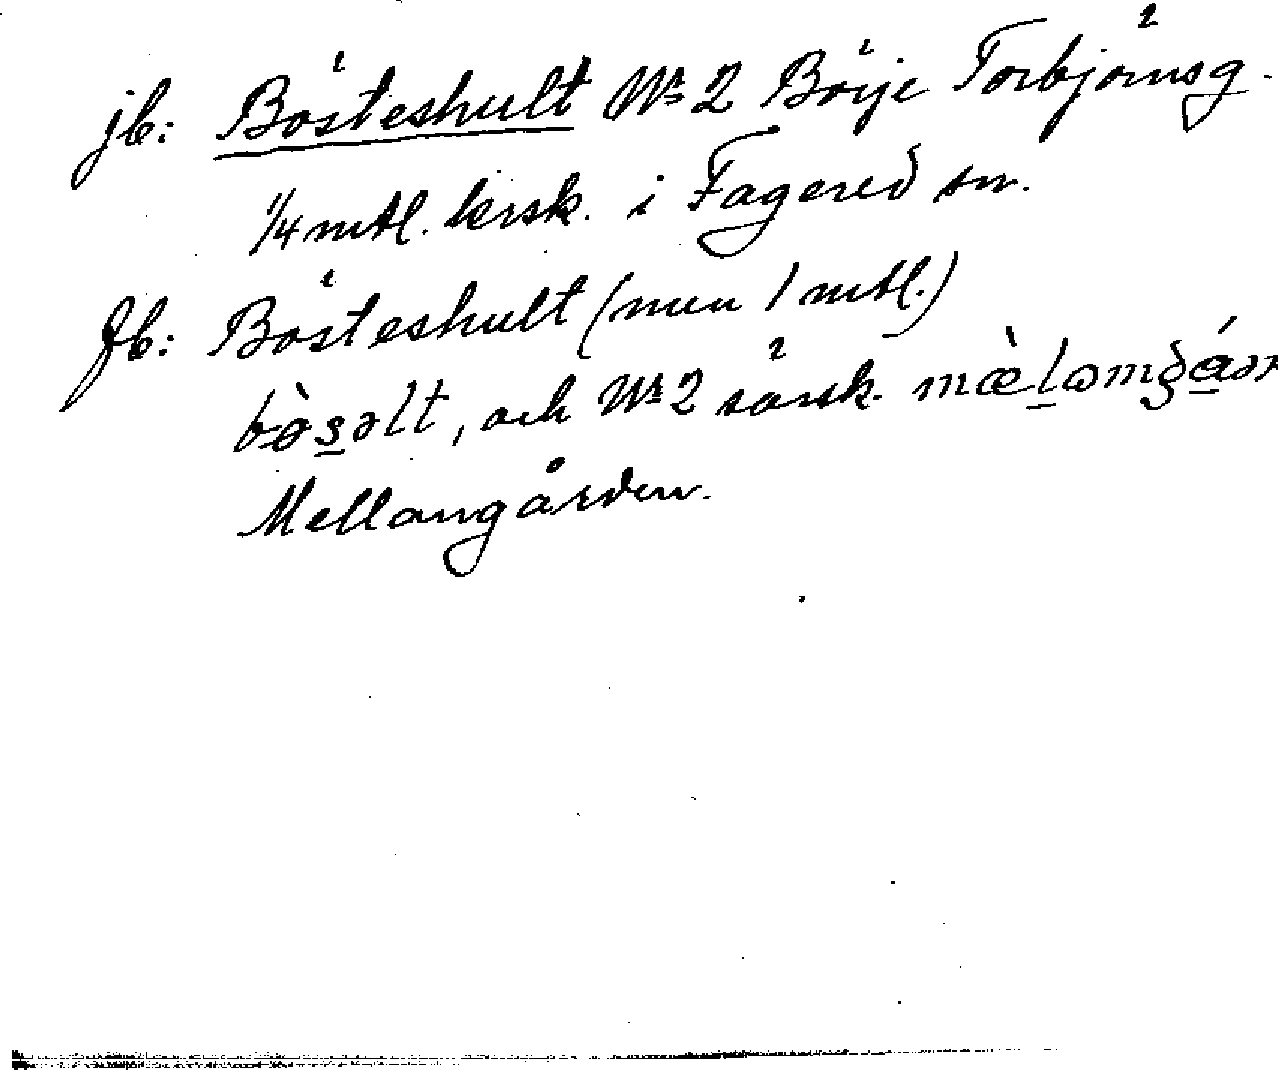 jb: Bösteshult No 2 Börje Torbjörnsg.
1/4 mtl. krsk. i Fagered sn.
fb: Bösteshult (men 1 mtl.)
och No 2 särsk.
Mellangården.